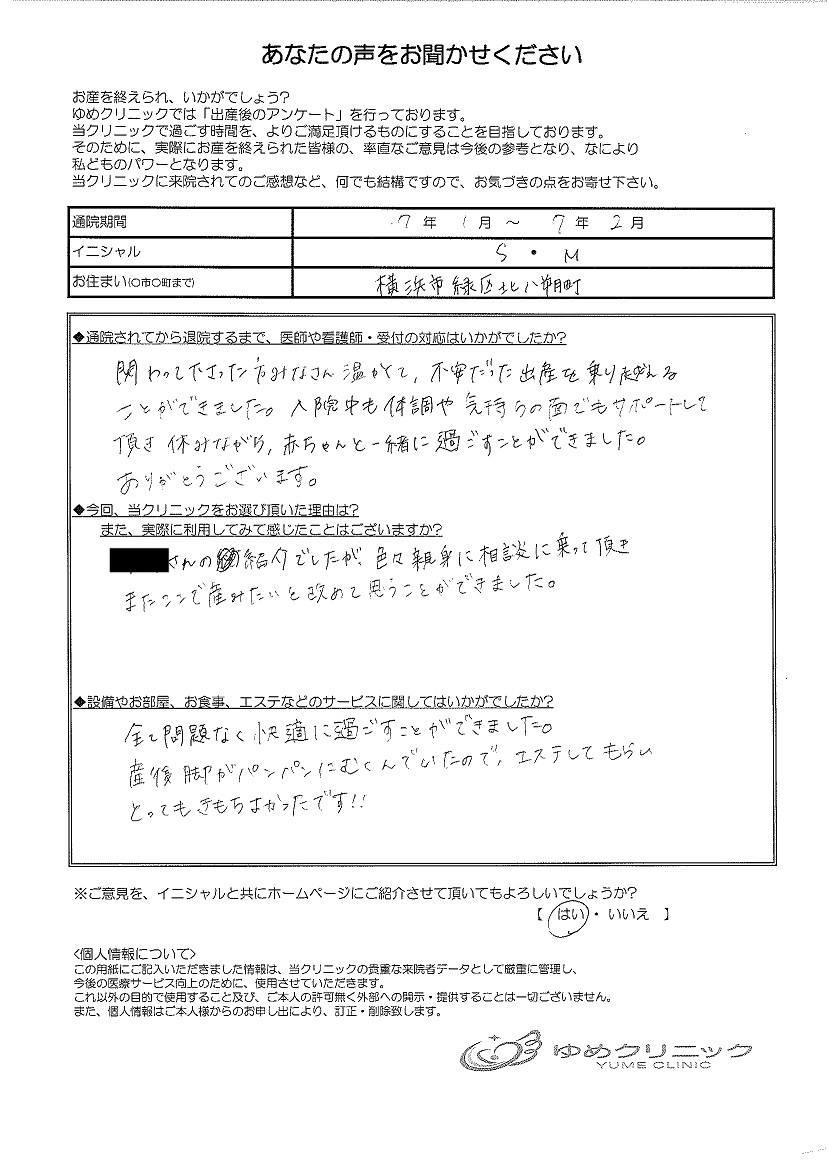 あなたの声をお聞かせください
お産を終えられ、いかがでしょう?
ゆめクリニックでは「出産後のアンケート」を行っております。
当クリニックで過ごす時間を、よりご満足頂けるものにすることを目指しております。
そのために、実際にお産を終えられた皆様の、率直なご意見は今後の参考となり、なにより
私どものパワーとなります。
当クリニックに来院されてのご感想など、何でも結構ですので、お気づきの点をお寄せ下さい。
通院期間 7年 1月 ~ 7年 2月
イニシャル S・M
お住まい(〇市〇町まで) 横浜市緑区北八朔町
◆通院されてから退院するまで、医師や看護師・受付の対応はいかがでしたか?
関わって下さった方みなさん温かくて、不安だった出産を乗り越える
ことができました。入院中も体調や気持ちの面でもサポートして
頂き休みながら、赤ちゃんと一緒に過ごすことができました。
ありがとうございます。
◆今回、当クリニックをお選び頂いた理由は?
また、実際に利用してみて感じたことはございますか?
さんの紹介でしたが、色々親身に相談に乗って頂き
またここで産みたいと改めて思うことができました。
◆設備やお部屋、お食事、エステなどのサービスに関してはいかがでしたか?
全て問題なく快適に過ごすことができました。
産後脚がパンパンにむくんでいたので、エステしてもらい
とってもきもちよかったです!!
※ご意見を、イニシャルと共にホームページにご紹介させて頂いてもよろしいでしょうか?
【 はい・いいえ 】
<個人情報について>
この用紙にご記入いただきました情報は、当クリニックの貴重な来院者データとして厳重に管理し、
今後の医療サービス向上のために、使用させていただきます。
これ以外の目的で使用すること及び、ご本人の許可無く外部への開示・提供することは一切ございません。
また、個人情報はご本人様からのお申し出により、訂正・削除致します。
ゆめクリニック
YUME CLINIC